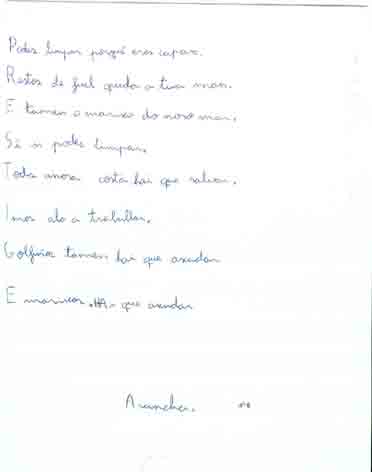 Podes limpar porque eres capaz.
Restos de fuel quedan a tua man.
E tamen o marisco do noso mar.
Se n podes limpar,
Toda anosa costa hai que salvar.
Imos alo a traballar.
Golfiños tamen hai que axudar
E mariscos. HA- que axudar
Arancha.